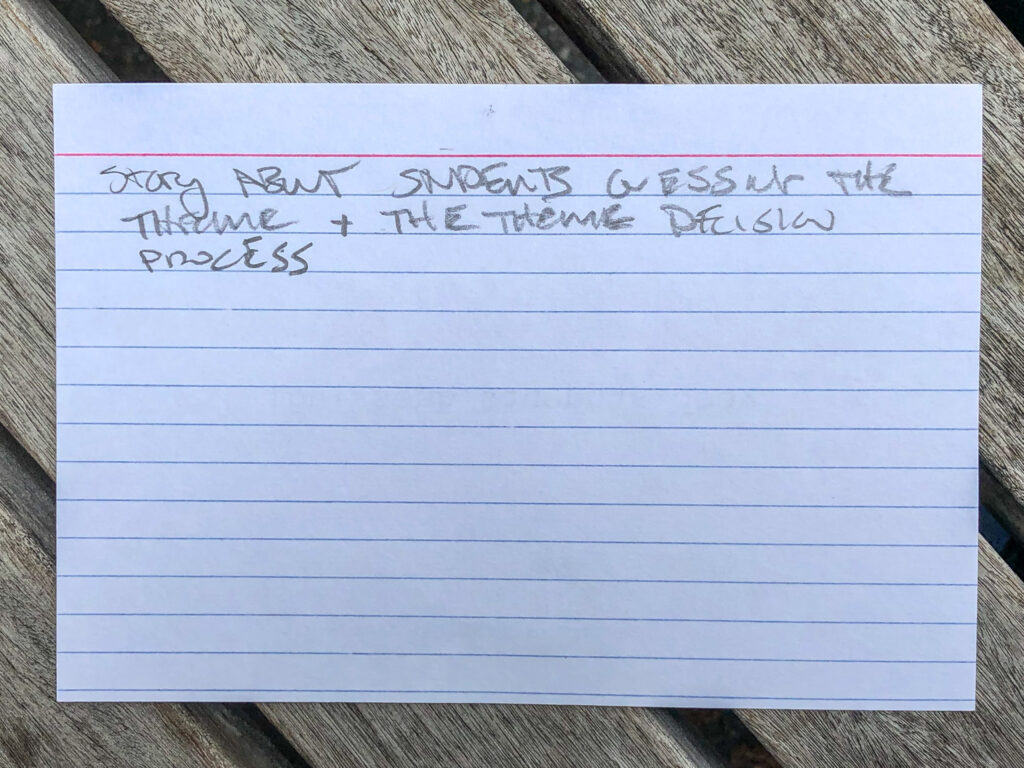 Story ABOUT STUDENTS GUESSING THE
THEME + THE THEME DECISION
PROCESS